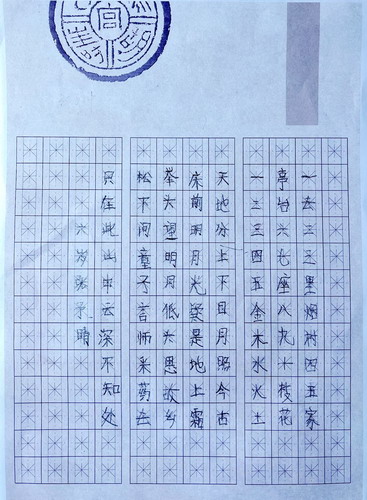 一去二三里烟村四五家
亭台六七座八九十枝花
一二三四五金木水火土
天地分上下日月照今古
床前明月光疑是地上霜
举头望明月低头思故乡
松下问童子言师采药去
只在此山中云深不知处
六岁张予晴